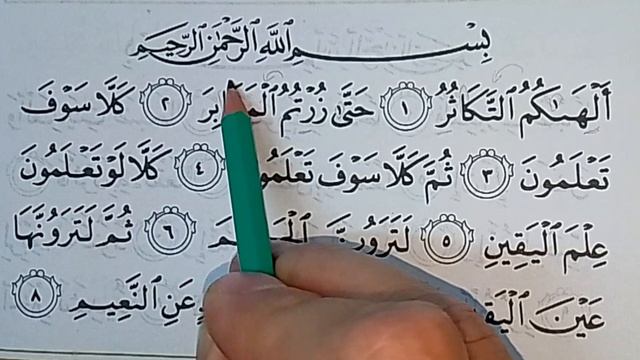 بِسْمِ ٱللَّهِ ٱلرَّحْمَٰنِ ٱلرَّحِيمِ
أَلْهَىٰكُمُ ٱلتَّكَاثُرُ ١ حَتَّىٰ زُرْتُمُ ٢ كَلَّا سَوْفَ
تَعْلَمُونَ ٣ ثُمَّ كَلَّا سَوْفَ ٤ كَلَّا لَوْ تَعْلَمُونَ
عِلْمَ ٱلْيَقِينِ ٥ لَتَرَوُنَّ ٦ ثُمَّ لَتَرَوُنَّهَا
عَيْنَ عَنِ ٱلنَّعِيمِ ٨